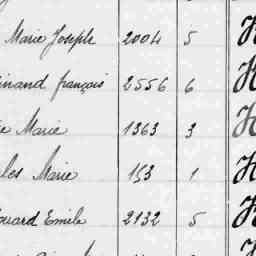 Marie Joseph 2004 5 H
inand françois 2556 6 H
ie Marie 1363 3 H
les Marie 153 1 H
ouard Emile 2132 5 H